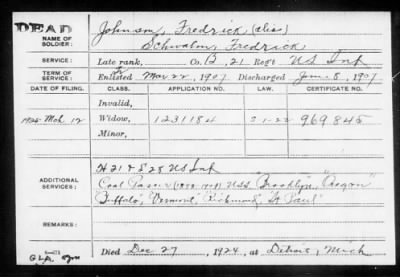 DEAD
NAME OF SOLDIER: Johnson, Fredrick (alias)
Schwalm, Fredrick
SERVICE: Late rank, Co. B, 21 Regt. US Inf
TERM OF SERVICE: Enlisted Mar 22, 1907 Discharged Jan. 8, 1909
DATE OF FILING. CLASS. APPLICATION NO. LAW. CERTIFICATE NO.
Invalid,
1925 Mch. 12 Widow, 1231184 969845
Minor,
ADDITIONAL SERVICES: H 21 & E 28 US Inf
Coal Passer USS "Brooklyn", "Oregon"
"Buffalo", "Vermont", "Richmond", "St Paul"
REMARKS:
Died Dec 27, 1924, at Detroit, Mich